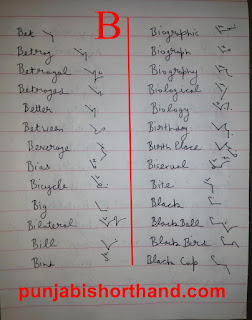 B
Bet
Betray
Betrayal
Betrayed
Better
Between
Beverage
Bias
Bicycle
Big
Bilateral
Bill
Bind
Biographic
Biograph
Biography
Biological
Biology
Birthday
Birth Place
Bisexual
Bite
Black
Black Ball
Black Bird
Black Cap
punjabishorthand.com